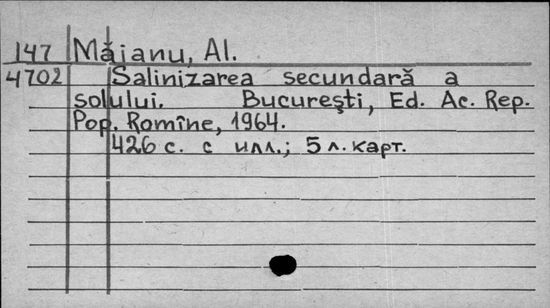 147 Măianu, Al.
4702 Salinizarea secundară a
solului. București, Ed. Ac. Rep.
Pop. Romîne, 1964.
426 с. с илл.; 5 л. карт.